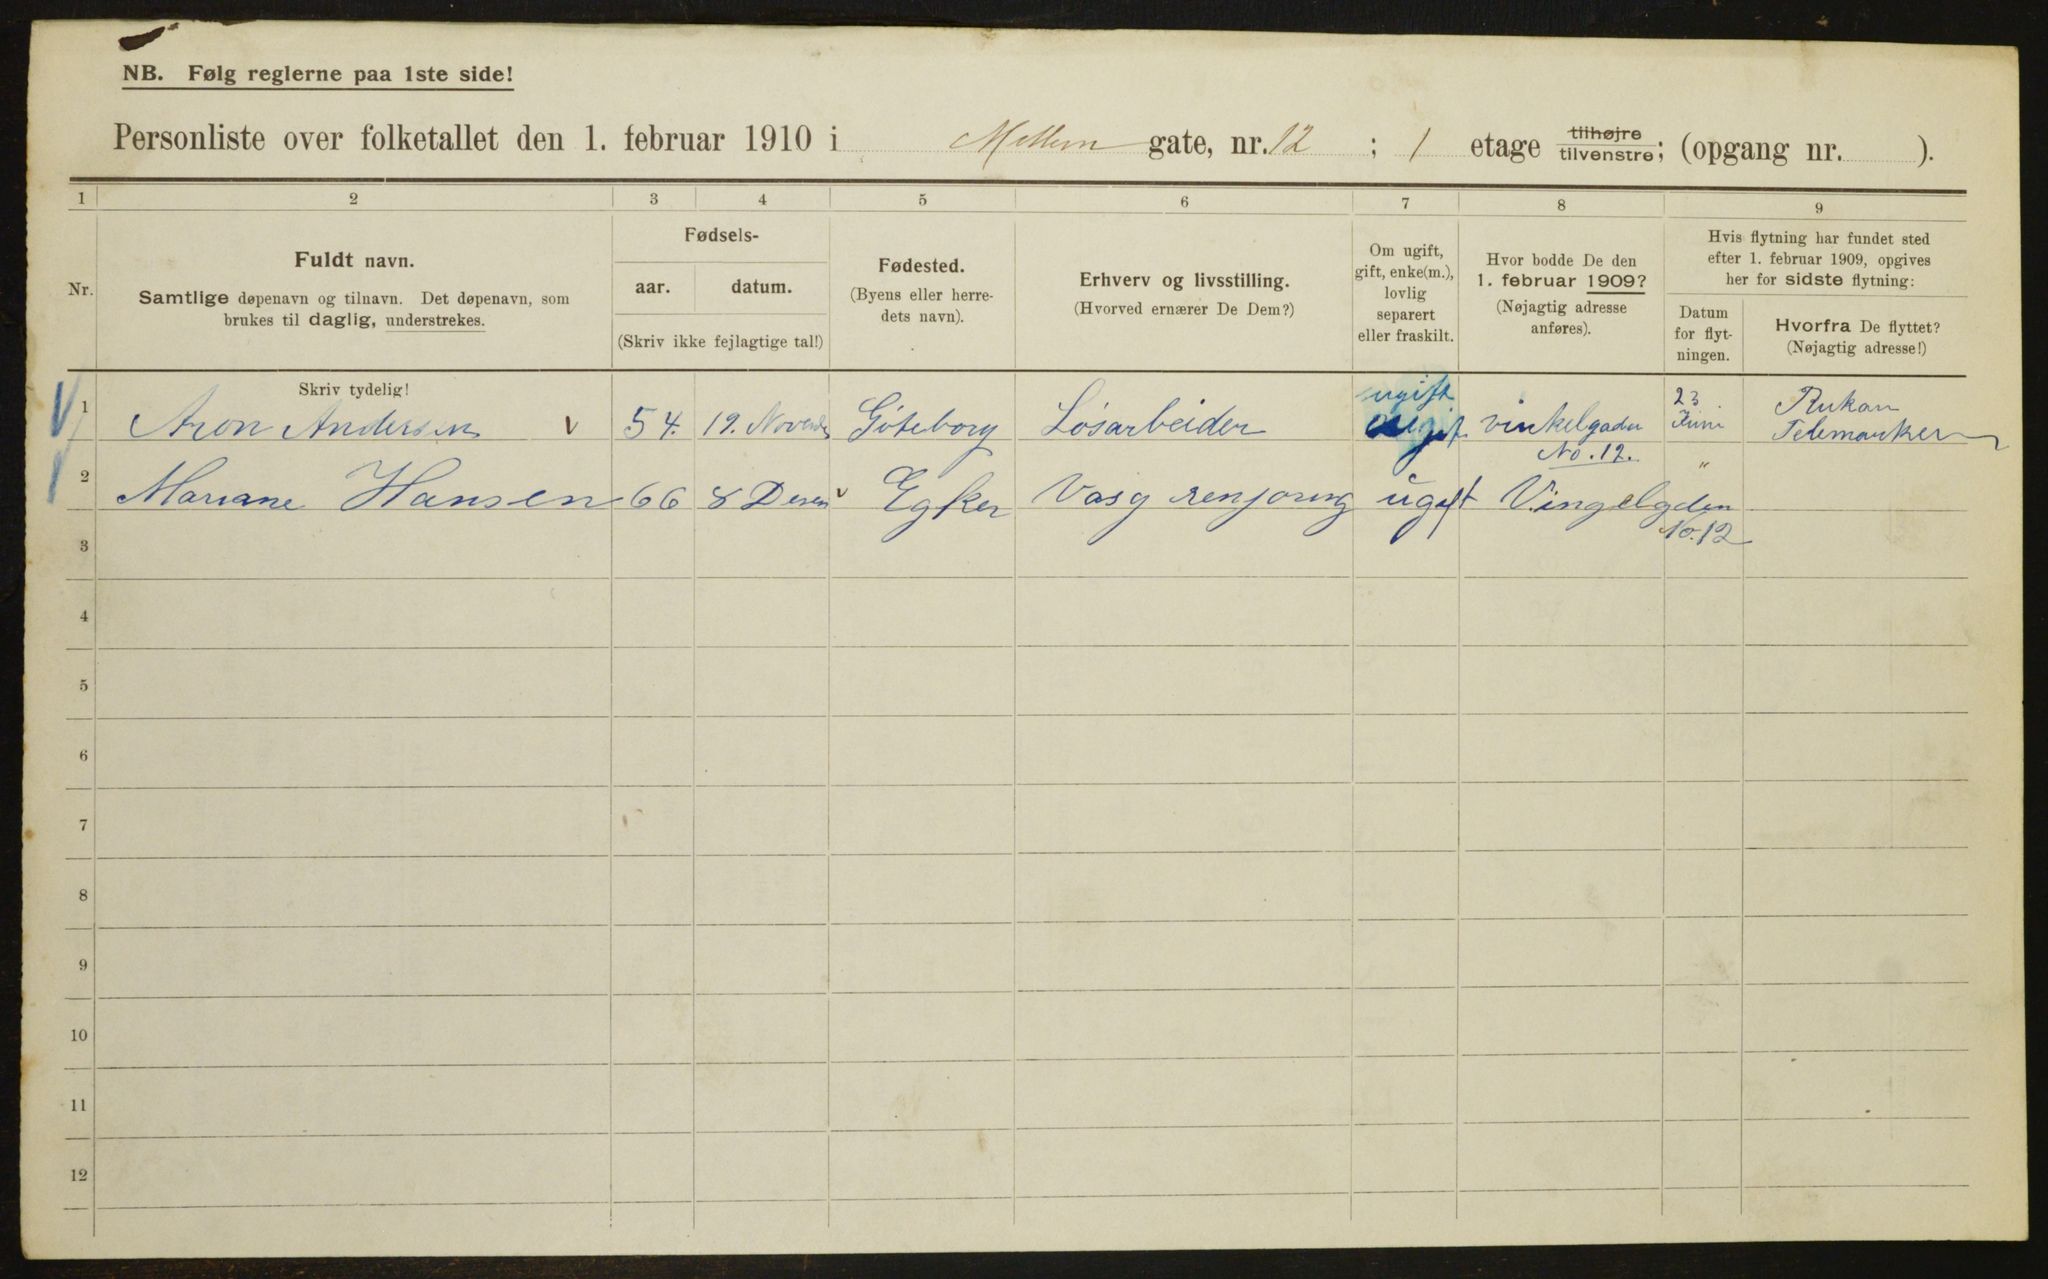 NB. Følg reglerne paa 1ste side!
Personliste over folketallet den 1. februar 1910 i Mellem gate, nr. 12 ; 1 etage tilhøjre tilvenstre; (opgang nr. ).
1 2 3 4 5 6 7 8 9
Nr.
Fuldt navn.
Samtlige døpenavn og tilnavn. Det døpenavn, som
brukes til daglig, understrekes.
Fødsels-
aar. datum.
(Skriv ikke fejlagtige tal!)
Fødested.
(Byens eller herre-
dets navn).
Erhverv og livsstilling.
(Hvorved ernærer De Dem?)
Om ugift,
gift, enke(m.),
lovlig
separert
eller fraskilt.
Hvor bodde De den
1. februar 1909?
(Nøjagtig adresse
anføres).
Hvis flytning har fundet sted
efter 1. februar 1909, opgives
her for sidste flytning:
Datum
for flyt-
ningen.
Hvorfra De flyttet?
(Nøjagtig adresse!)
Skriv tydelig!
1 Aron Andersen v 54. 19. Novembr Göteborg Løsarbeider ugift vinkelgaden No. 12. 23 Juni Rukan Telemarken
2 Mariane Hansen 66 8 Desem v Egker Vasg renjoring ugift Vingelgden No. 12 "
3
4
5
6
7
8
9
10
11
12